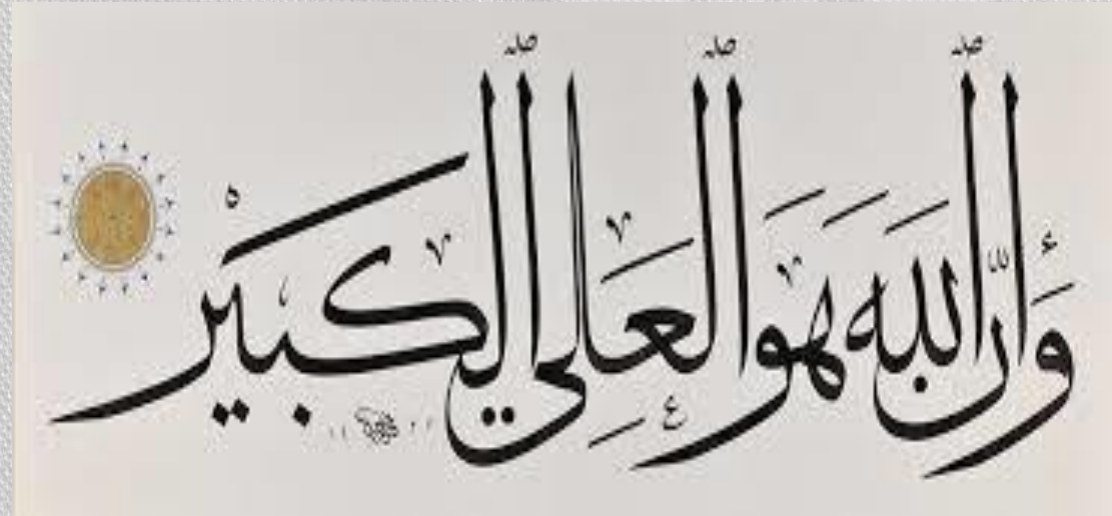 وَأَنَّ اللهَ هُوَ العَلِي الكَبير